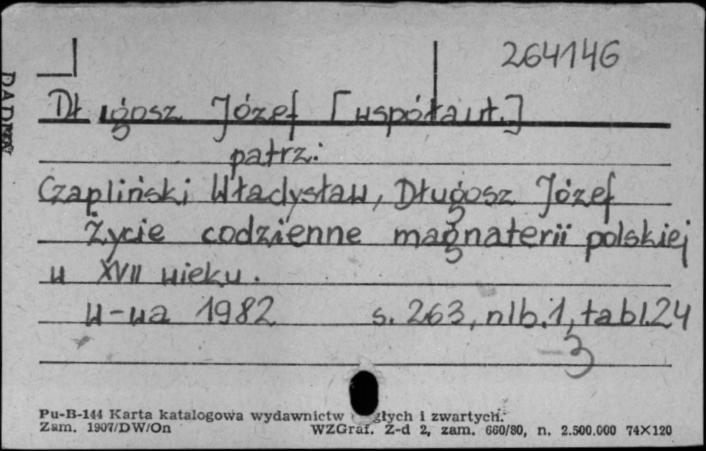 264146
Długosz Józef [współaut.]
patrz:
Czapliński Władysław, Długosz Józef
Życie codzienne magnaterii polskiej
w XVII wieku.
W-wa 1982 s. 263, nlb.1, tabl.24
3
Pu-B-144 Karta katalogowa wydawnictw głych i zwartych.
Zam. 1907/DW/On WZGraf. Z-d 2, zam. 660/80, n. 2.500.000 74X120